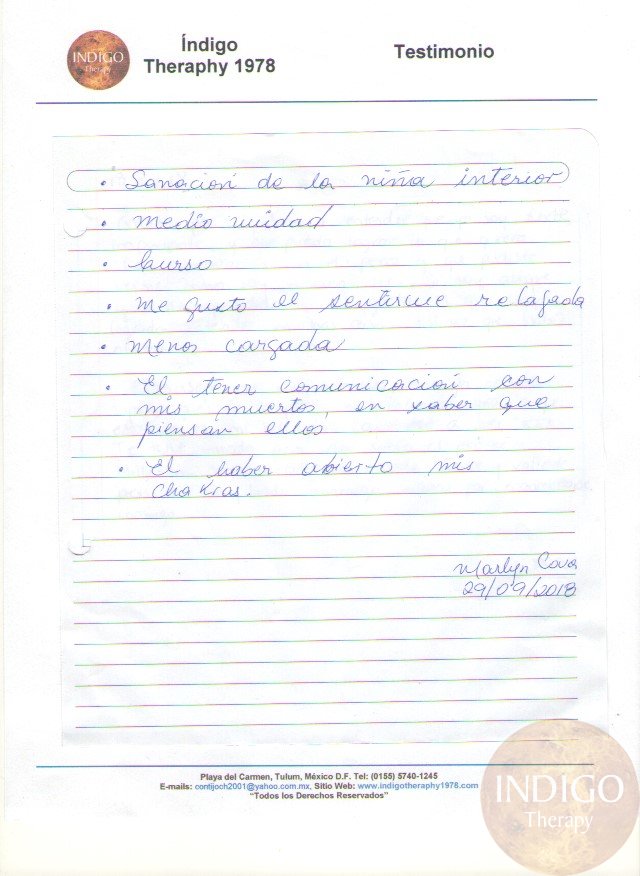 INDIGO
Therapy
Índigo
Theraphy 1978
Testimonio
• Sanación de la niña interior
• Medio unidad
• Curso
• Me gusto el sentirme relajada
• Menos cargada
• El tener comunicación con
mis muertos, en saber que
piensan ellos
• El haber abierto mis
chakras.
Marlyn Cova
29/09/2018
Playa del Carmen, Tulum, México D.F. Tel: (0155) 5740-1245
E-mails: contijoch2001@yahoo.com.mx, Sitio Web: www.indigotheraphy1978.com
"Todos los Derechos Reservados"
INDIGO
Therapy